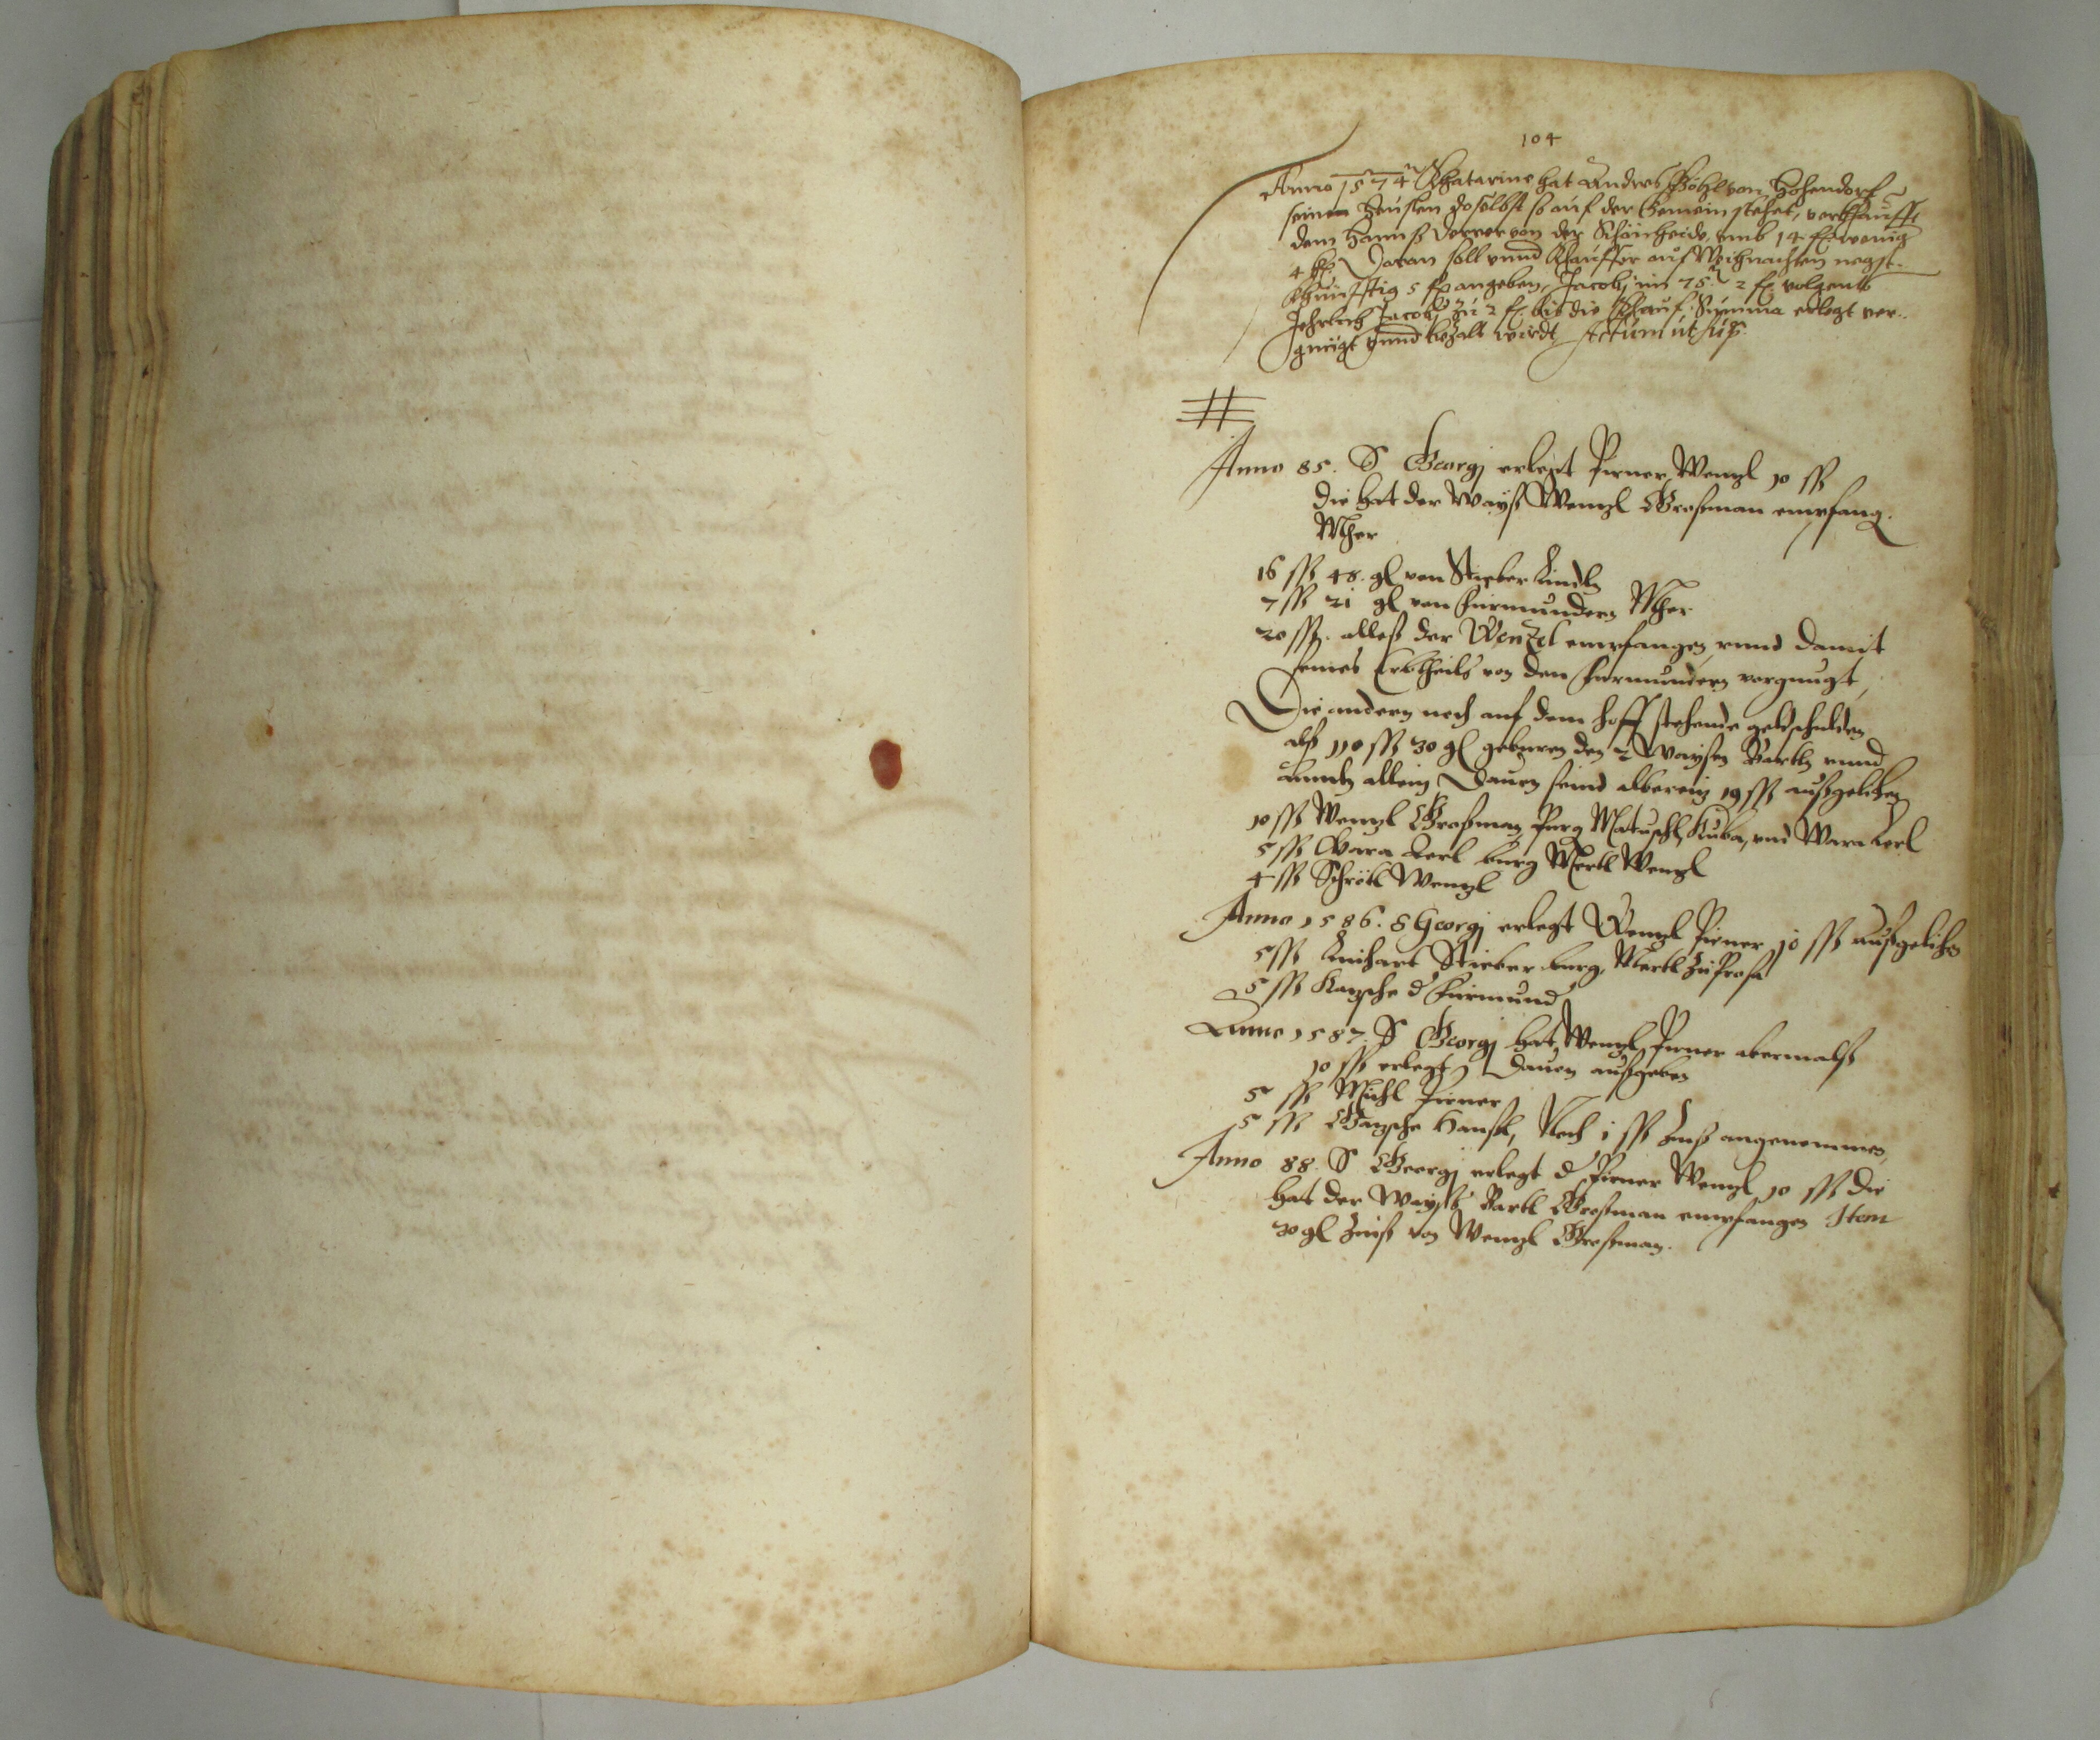 104
Anno 1574 Khatarine hat Andres Böhl von Hohendorf
seinen Heuslen doselbst so auf der Gemein stehet, verkhaufft
dem Hannß Derrer von der Schönheide, umb 14 ß. wenig
4 gl. Daran soll unnd Khauffer auf Weihnachten negst
Khünfftig 5 ß angeben, Jacobj im 75. 2 ß. volgents
Jehrlich Jacobj zu 2 ß. bis die Khauf Summa erlegt ver..
gnügt unnd bezalt wirdt Actum ut sup.
Anno 85. S Georgj erlegt Pirner Wenzl 10 ßß
die hat der Wayß Wenzl Großman empfang.
Mher
16 ßß 48. gl von Stieber Lindl
7 ßß 21 gl von furmundern Mher
20 ßß. alleß der Wenzel empfangen unnd damit
seines Erbtheils von den furmundern vorgnugt,
Die andern noch auf dem hoff stehende geldschulden
alß 110 ßß 30 gl geburen den 2 Waysen Bartln unnd
allein Dauon seind alberein 19 ßß außgelihen
10 ßß Wenzl Großman Purg Matuschl Kuba, und Wara Lerl
5 ßß Wara Lerl burg Mertl Wenzl
4 ßß Schrötl Wenzl
Anno 1586. S Georgj erlegt Wenzl Pirner 10 ßß außgelihen
5 ßß Linhart Stieber burg, Mertl zu Prosa
5 ßß Kazsche d furmund
Anno 1587. S Georgj hat Wenzl Pirner abermalß
10 ßß erlegt, Dauon außgeben
5 ßß Michl Pirner
5 ßß Gazsche Hansl, Noch 1 ßß Zinß angenommen,
Anno 88. S Georgj erlegt d Pirner Wenzl 10 ßß die
hat der Wayß Bartl Großman empfangen Item
30 gl Zinß von Wenzl Großman.